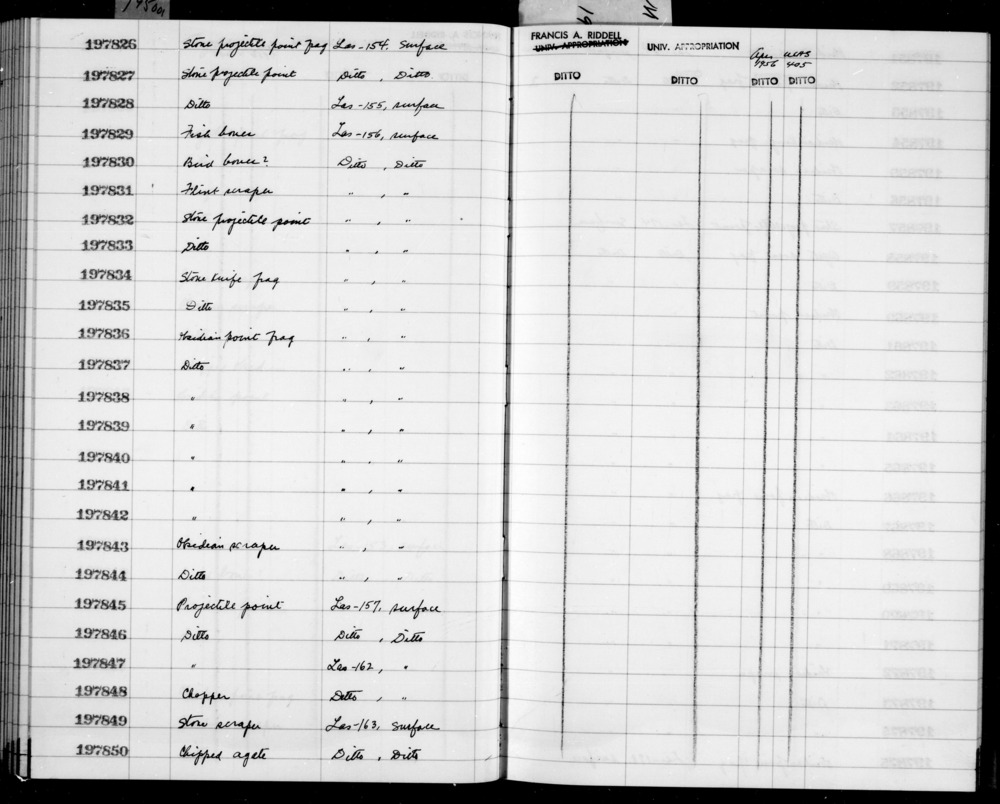 FRANCIS A. RIDDELL
UNIV. APPROPRIATION UNIV. APPROPRIATION
197826 Stone projectile point frag Las-154, Surface Apr. 1956 UCAS 405
197827 Stone projectile point Ditto, Ditto DITTO DITTO DITTO DITTO
197828 Ditto Las-155, surface
197829 Fish bones Las-156, surface
197830 Bird bones? Ditto, Ditto
197831 Flint scraper " , "
197832 Stone projectile point " , "
197833 Ditto " , "
197834 Stone knife frag " , "
197835 Ditto " , "
197836 Obsidian point frag " , "
197837 Ditto " , "
197838 " " , "
197839 " " , "
197840 " " , "
197841 " " , "
197842 " " , "
197843 Obsidian scraper " , "
197844 Ditto " , "
197845 Projectile point Las-157, surface
197846 Ditto Ditto, Ditto
197847 " Las-162, "
197848 Chopper Ditto, "
197849 Stone scraper Las-163, Surface
197850 Chipped agate Ditto, Ditto